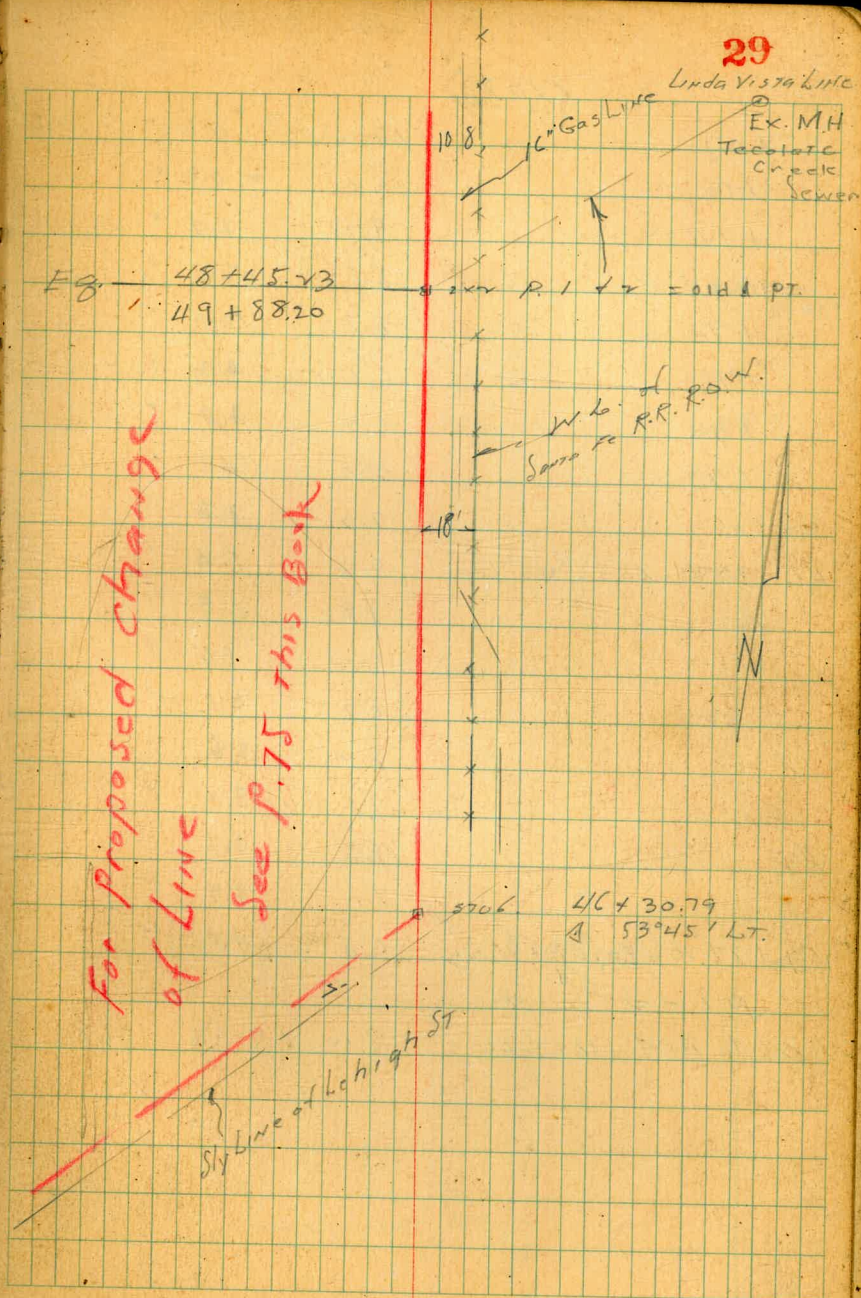 29
Linda Vista Line
Ex. M.H
Tecolote
Creek
Sewer
16" Gas Line
10 8
Eq. 48+45.23
49+88.20
2x2 P. 1 & 2 = old Δ PT.
W. L. of
Santa Fe R.R. R.O.W.
18'
N
For Proposed Change
of Line
See P.75 This Book
46+30.79
Δ 53°45' LT.
5'
Sly Line of Lehigh ST